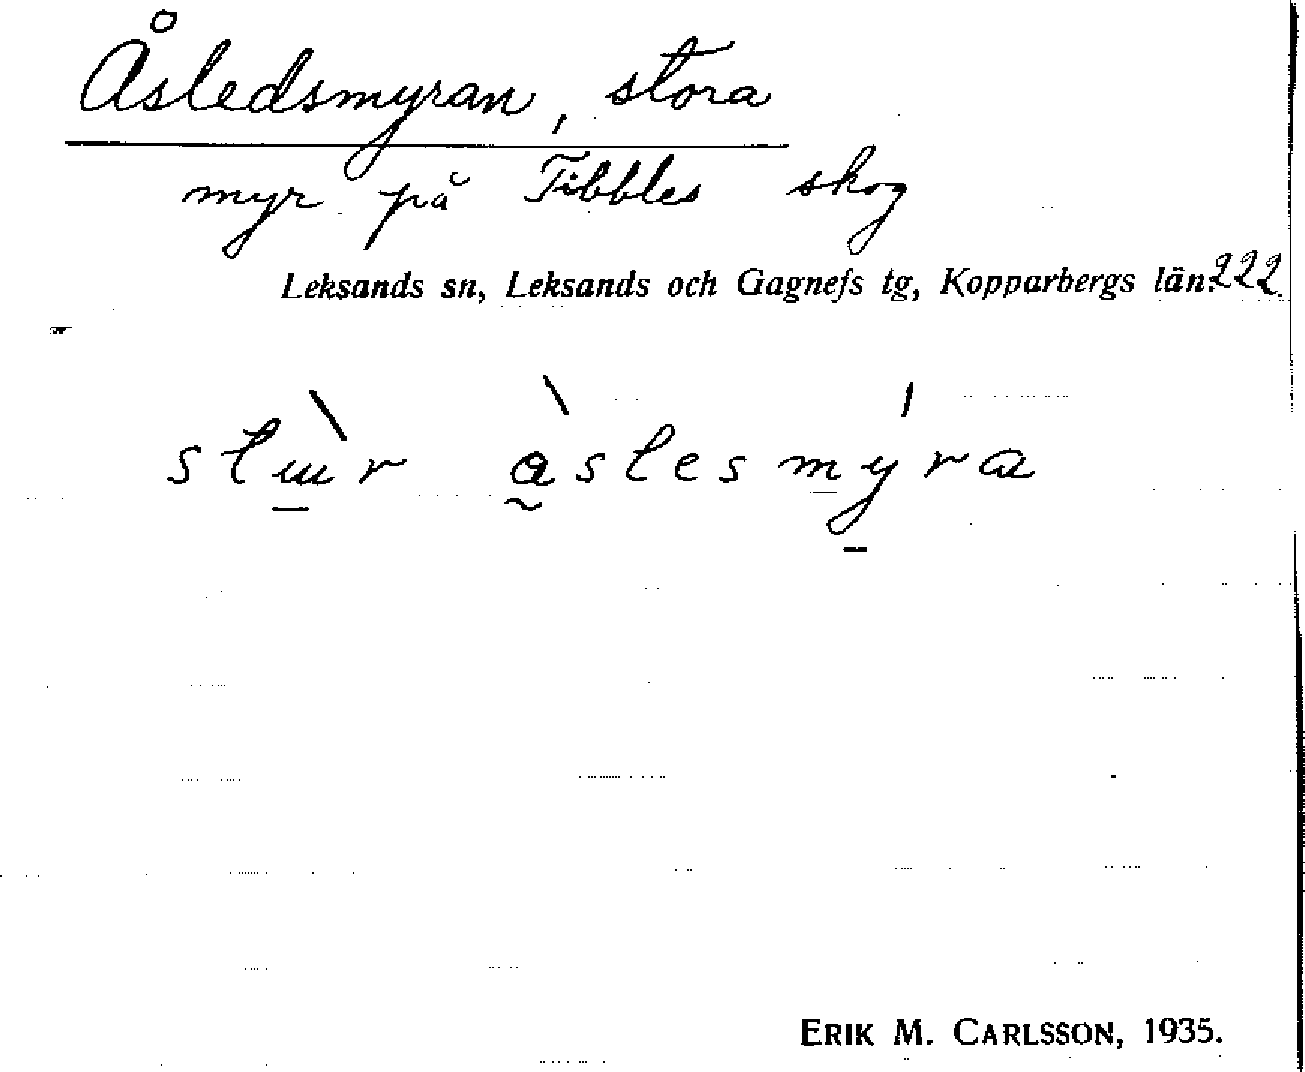 Åsledsmyran, stora
myr på Tibbles skog
Leksands sn, Leksands och Gagnefs tg, Kopparbergs län. 222.
åslesmyra
ERIK M. CARLSSON, 1935.